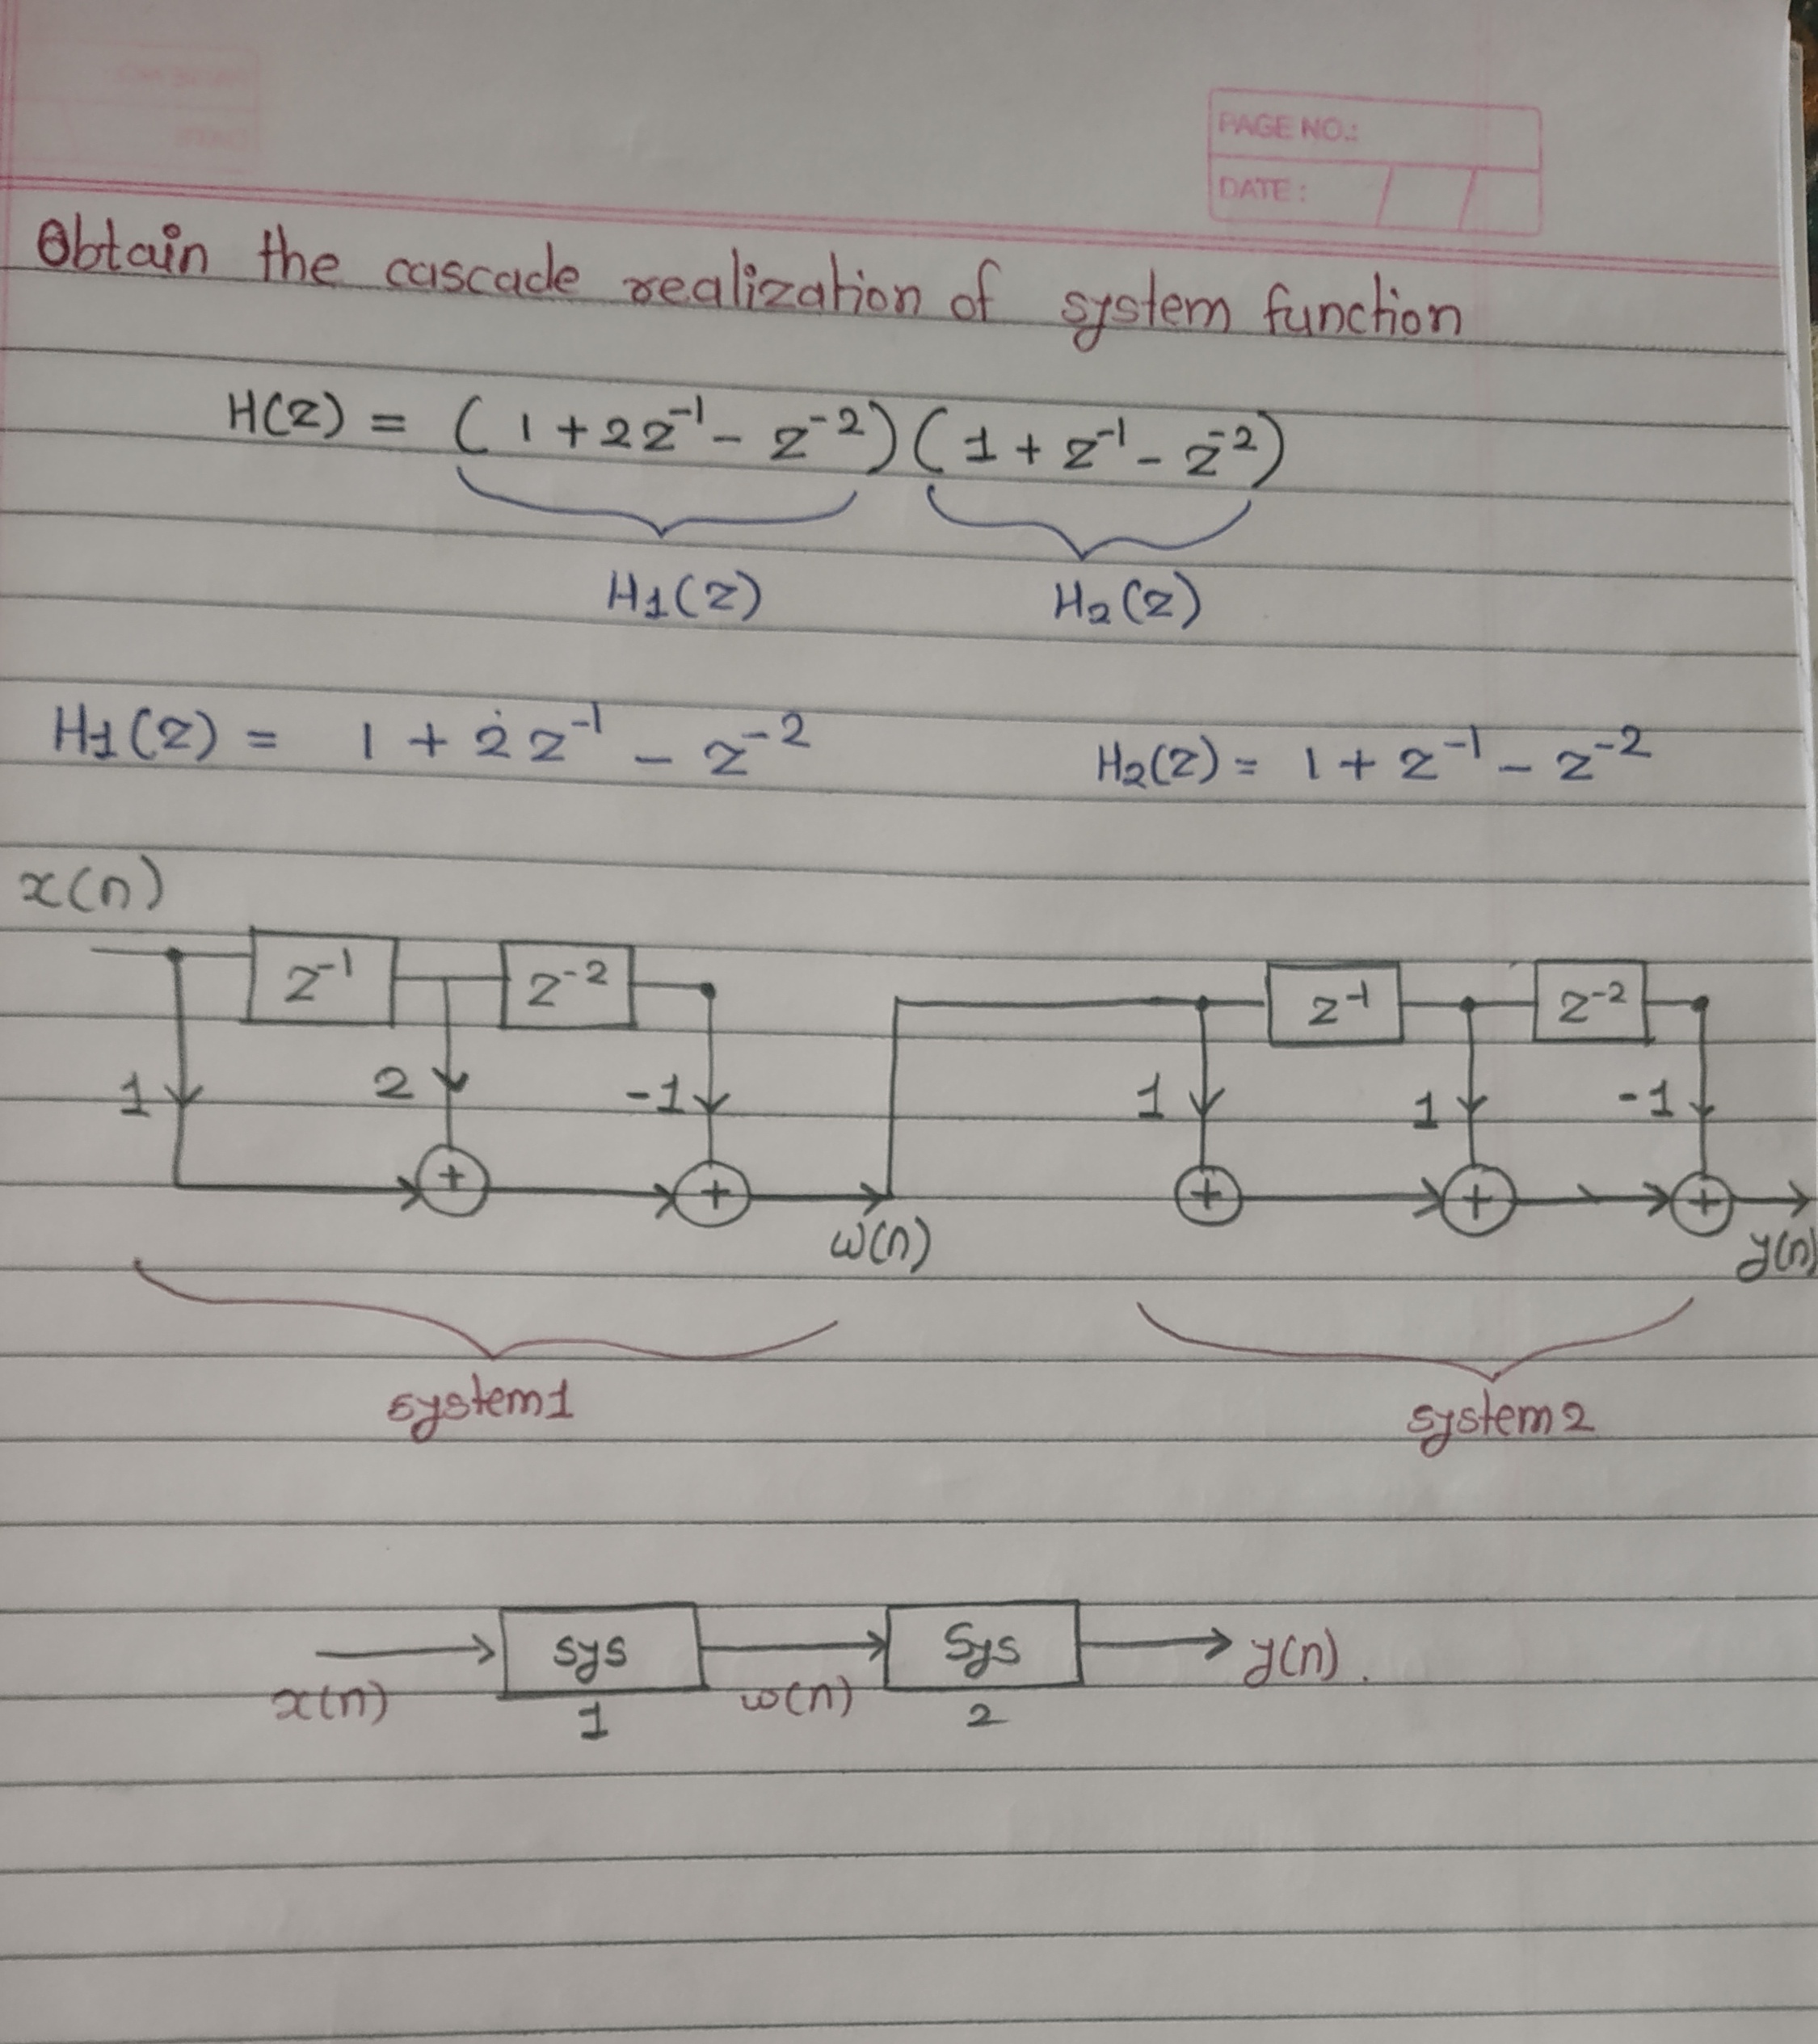 PAGE NO.:
DATE :
Obtain the cascade realization of system function
H(Z) = (1+2z⁻¹- z⁻²)(1+z⁻¹-z⁻²)
H1(Z) H2(Z)
H1(Z) = 1 + 2z⁻¹ - z⁻² H2(Z) = 1+ z⁻¹- z⁻²
x(n)
z⁻¹ z⁻² z⁻¹ z⁻²
1 2 -1 1 1 -1
+ + + + +
w(n) y(n)
system1 system2
sys Sys y(n).
x(n) w(n)
1 2